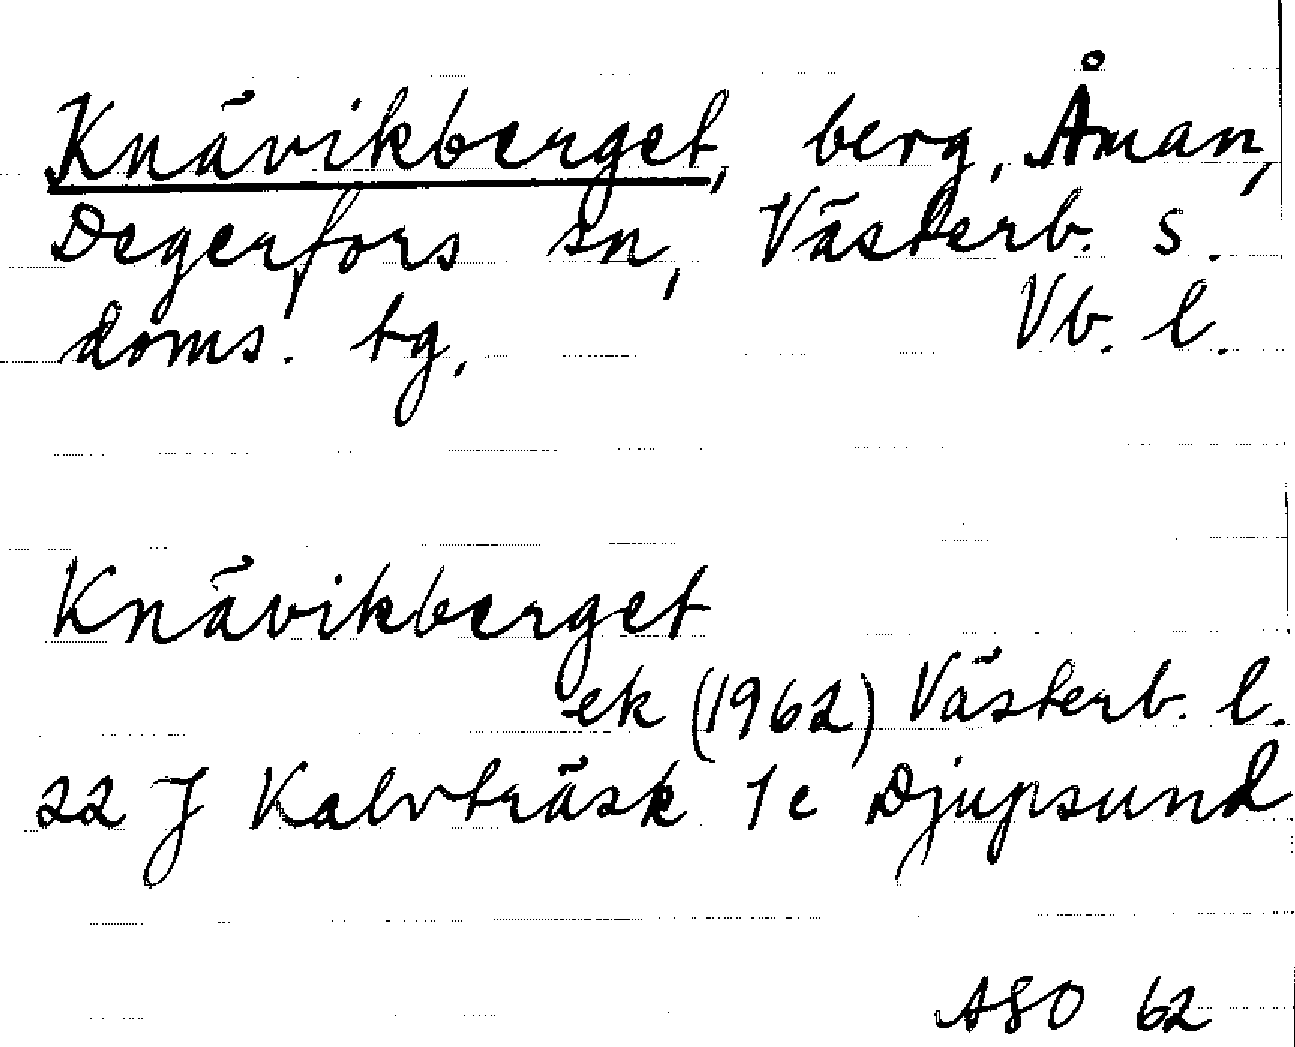 Knävikberget, berg, Åman,
Degerfors sn, Västerb. s.
doms. tg. Vb. l.
Knävikberget
ek (1962) Västerb. l.
22 J Kalvträsk 1 c Djupsund
ASO 62